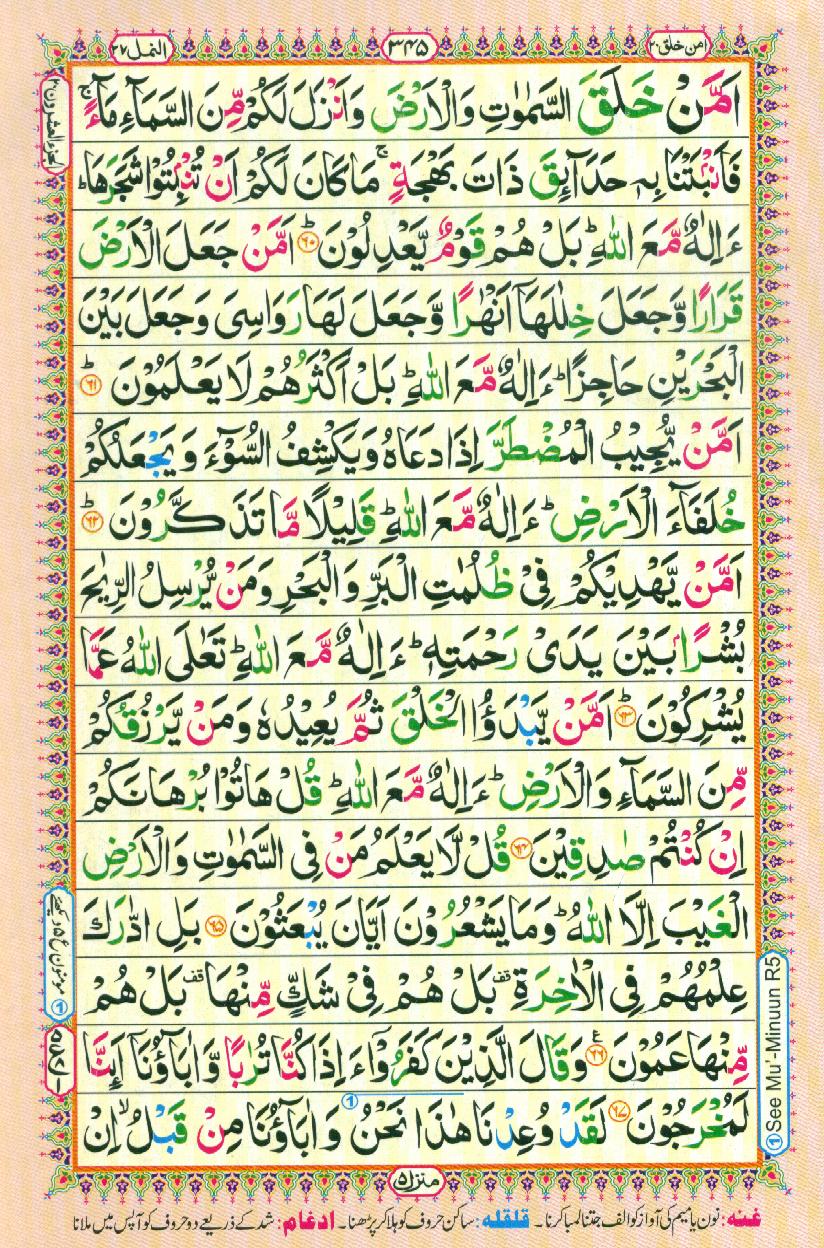 امن خلق ٢٠
٣٤٥
النمل ٢٧
اَمَّنْ خَلَقَ السَّمٰوٰتِ وَالْاَرْضَ وَاَنْزَلَ لَكُمْ مِّنَ السَّمَآءِ مَآءً ۚ
فَاَنْۢبَتْنَا بِهٖ حَدَآئِقَ ذَاتَ بَهْجَةٍ ۚ مَا كَانَ لَكُمْ اَنْ تُنْۢبِتُوْا شَجَرَهَا ؕ
ءَاِلٰهٌ مَّعَ اللّٰهِ ؕ بَلْ هُمْ قَوْمٌ يَّعْدِلُوْنَ ؕ ﴿٦٠﴾ اَمَّنْ جَعَلَ الْاَرْضَ
قَرَارًا وَّجَعَلَ خِلٰلَهَاۤ اَنْهٰرًا وَّجَعَلَ لَهَا رَوَاسِىَ وَجَعَلَ بَيْنَ
الْبَحْرَيْنِ حَاجِزًا ؕ ءَاِلٰهٌ مَّعَ اللّٰهِ ؕ بَلْ اَكْثَرُهُمْ لَا يَعْلَمُوْنَ ؕ ﴿٦١﴾
اَمَّنْ يُّجِيْبُ الْمُضْطَرَّ اِذَا دَعَاهُ وَيَكْشِفُ السُّوْٓءَ وَيَجْعَلُكُمْ
خُلَفَآءَ الْاَرْضِ ؕ ءَاِلٰهٌ مَّعَ اللّٰهِ ؕ قَلِيْلًا مَّا تَذَكَّرُوْنَ ؕ ﴿٦٢﴾
اَمَّنْ يَّهْدِيْكُمْ فِىْ ظُلُمٰتِ الْبَرِّ وَالْبَحْرِ وَمَنْ يُّرْسِلُ الرِّيٰحَ
بُشْرًۢا بَيْنَ يَدَىْ رَحْمَتِهٖ ؕ ءَاِلٰهٌ مَّعَ اللّٰهِ ؕ تَعٰلَى اللّٰهُ عَمَّا
يُشْرِكُوْنَ ؕ ﴿٦٣﴾ اَمَّنْ يَّبْدَؤُا الْخَلْقَ ثُمَّ يُعِيْدُهٗ وَمَنْ يَّرْزُقُكُمْ
مِّنَ السَّمَآءِ وَالْاَرْضِ ؕ ءَاِلٰهٌ مَّعَ اللّٰهِ ؕ قُلْ هَاتُوْا بُرْهَانَكُمْ
اِنْ كُنْتُمْ صٰدِقِيْنَ ﴿٦٤﴾ قُلْ لَّا يَعْلَمُ مَنْ فِى السَّمٰوٰتِ وَالْاَرْضِ
الْغَيْبَ اِلَّا اللّٰهُ ؕ وَمَا يَشْعُرُوْنَ اَيَّانَ يُبْعَثُوْنَ ﴿٦٥﴾ بَلِ ادّٰرَكَ
عِلْمُهُمْ فِى الْاٰخِرَةِ قف بَلْ هُمْ فِىْ شَكٍّ مِّنْهَا قف بَلْ هُمْ
مِّنْهَا عَمُوْنَ ﴿٦٦﴾ ع وَقَالَ الَّذِيْنَ كَفَرُوْۤا ءَاِذَا كُنَّا تُرٰبًا وَّاٰبَآؤُنَاۤ اَئِنَّا
لَمُخْرَجُوْنَ ﴿٦٧﴾ لَقَدْ وُعِدْنَا هٰذَا نَحْنُ ① وَاٰبَآؤُنَا مِنْ قَبْلُ ۙ اِنْ
منزل ٥
① See Mu'-Minuun R5
غنہ: نون یا میم کی آواز کو الف جتنا لمبا کرنا۔ قلقلہ: ساکن حروف کو ہلا کر پڑھنا۔ ادغام: شد کے ذریعے دو حروف کو آپس میں ملانا